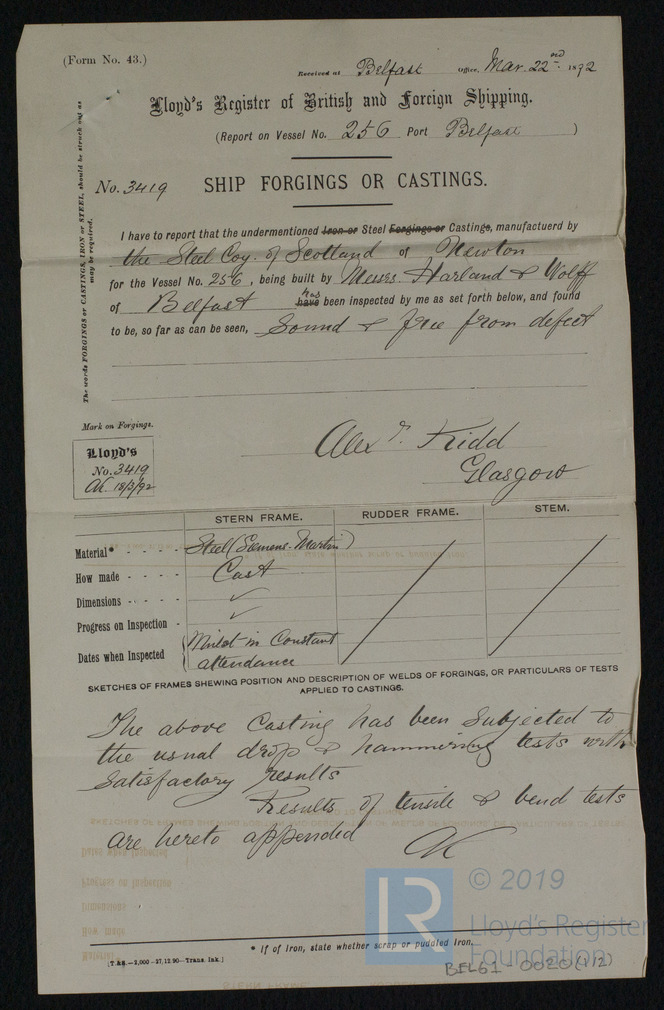 (Form No. 43.)
Received at Belfast Office, Mar. 22nd 1892
Lloyd's Register of British and Foreign Shipping.
(Report on Vessel No. 256 Port Belfast )
No. 3419 SHIP FORGINGS OR CASTINGS.
The words FORGINGS or CASTINGS, IRON or STEEL, should be struck out as
may be required.
I have to report that the undermentioned Iron or Steel Forgings or Castings, manufactuerd by
the Steel Coy. of Scotland of Newton
for the Vessel No. 256, being built by Messrs. Harland & Wolff
of Belfast has have been inspected by me as set forth below, and found
to be, so far as can be seen, Sound & free from defect
Mark on Forgings.
Lloyd's
No. 3419
AK. 18/3/92
Alexr. Kidd
Glasgow
STERN FRAME. RUDDER FRAME. STEM.
Material* - - - - Steel (Siemens-Martin)
How made - - - - Cast
Dimensions - - - - ✓
Progress on Inspection - ✓
Dates when Inspected in Constant
attendance
SKETCHES OF FRAMES SHEWING POSITION AND DESCRIPTION OF WELDS OF FORGINGS, OR PARTICULARS OF TESTS
APPLIED TO CASTINGS.
The above Casting has been Subjected to
the usual drop & hammering tests with
Satisfactory results
Results of tensile & bend tests
are hereto appended AK
* If of Iron, state whether scrap or puddled Iron.
[T.&S.—2,000—17,12.90—Trans. Ink.]
© 2019
LR
Lloyd's Register
Foundation
BEL61-0020(1/2)